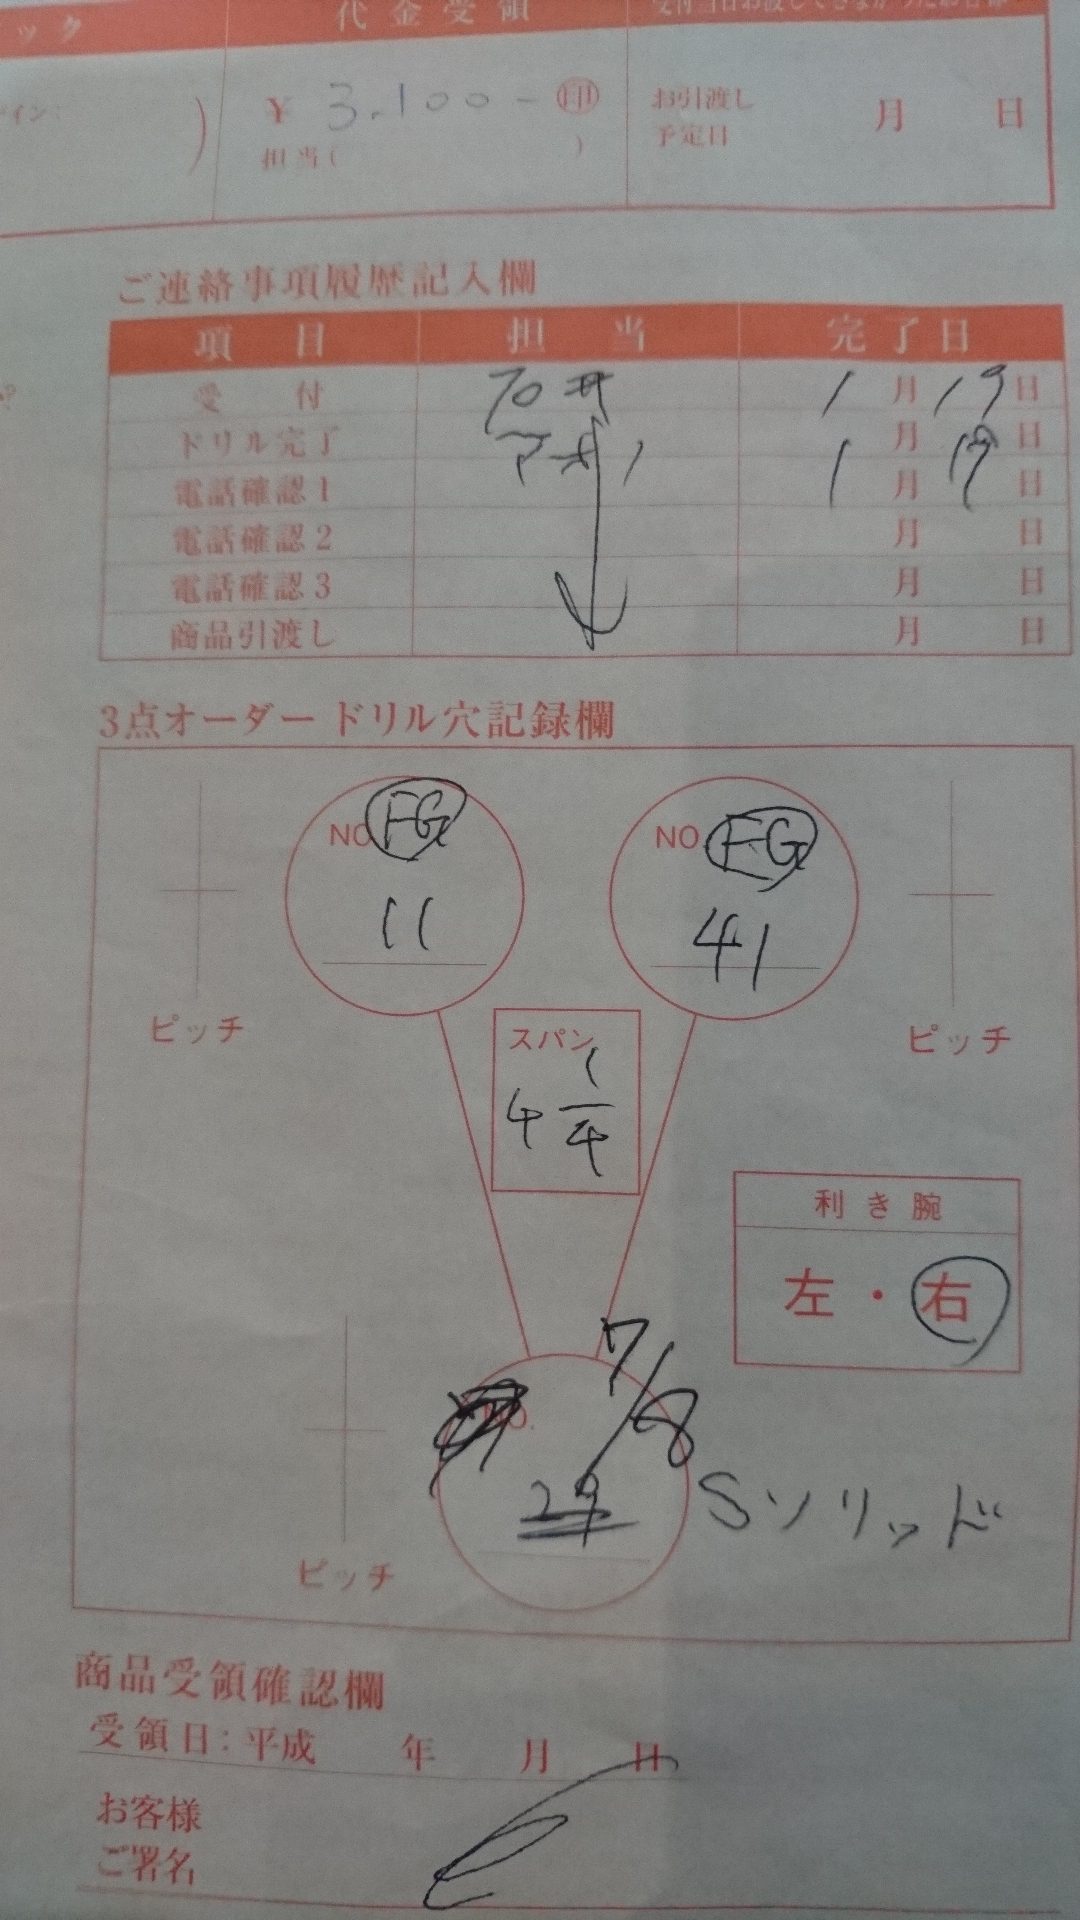 ック 代金受領
¥ 3,100- 印 お引渡し 月 日
担当( ) 予定日
ご連絡事項履歴記入欄
項目 担当 完了日
受付 1月19日
ドリル完了 月 日
電話確認1 1月19日
電話確認2 月 日
電話確認3 月 日
商品引渡し 月 日
3点オーダー ドリル穴記録欄
NO. FG NO. FG
11 41
ピッチ スパン ピッチ
4 1/4
利き腕
左・右
7/8
NO.
29 Sソリッド
ピッチ
商品受領確認欄
受領日:平成 年 月 日
お客様
ご署名